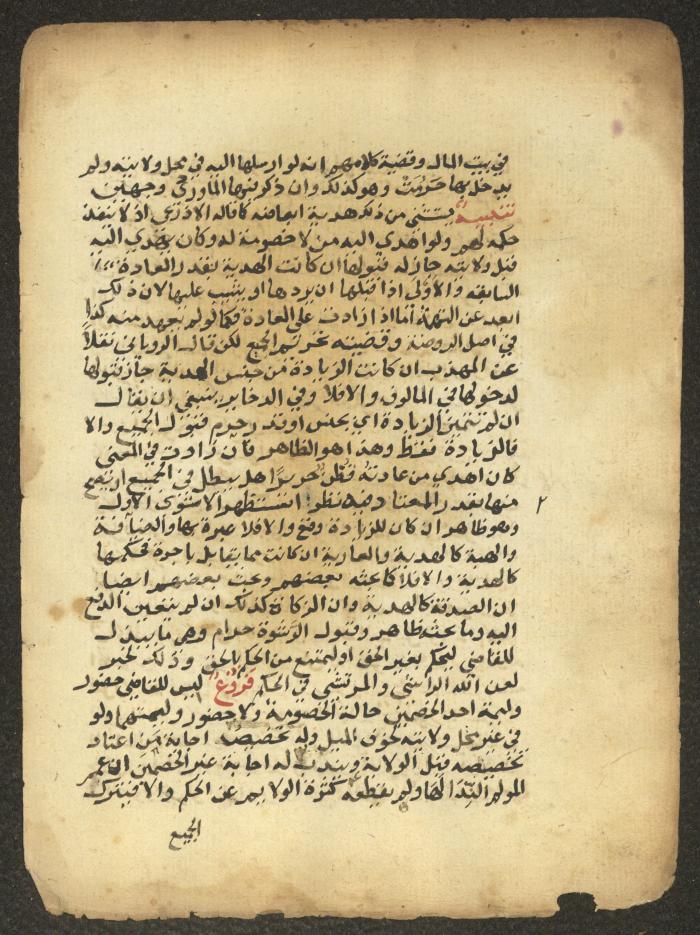 في بيت المال وقضية كلامهم انه لو ارسلها اليه في محل ولايته ولم
يدخل بها حرمت وهو كذلك وان ذكر فيها الماوردي وجهين
تنبيه يستثنى من ذلك هدية ابعاضه كما قاله الاذرعي اذ لا ينفذ
حكمه لهم ولو اهدي اليه من لا خصومة له وكان يهدي اليه
قبل ولايته جاز له قبولها ان كانت الهدية بقدر العادة
السابقه والاولى اذا قبلها ان يردها او يثيب عليها لان ذلك
ابعد عن التهمة اما اذا زادت على العادة فكما لو لم تعهد منه كذا
في اصل الروضة وقضيته تحريم الجميع لكن قال الروياني نقلا
عن المهذب ان كانت الزيادة من جنس الهدية جاز قبولها
لدخولها في المالوف والا فلا وفي الذخاير ينبغي ان يقال
ان لم تتميز الزيادة اي بجنس او قدر حرم قبول الجميع والا
فالزيادة فقط وهذا هو الظاهر فان زادت في المعنى
كان اهدي من عادته قطن حريرا هل يبطل في الجميع او يصح
منها بقدر المعتاد فيه نظر استظهر الاسنوي الاول
٢
وهو ظاهر ان كان للزيادة وقع والا فلا عبرة بها والضيافة
والهبة كالهدية والعارية ان كانت مما يقابل باجرة فحكمها
كالهدية والا فلا كما بحثه بعضهم وبحث بعضهم ايضا
ان الصدقة كالهدية وان الزكاة كذلك ان لم يتعين الدفع
اليه وما بحثه ظاهر وقبول الرشوة حرام وهي ما يبذل
للقاضي ليحكم بغير الحق او ليمتنع من الحكم بالحق وذلك لخبر
لعن الله الراشي والمرتشي في الحكم فروع ليس للقاضي حضور
وليمة احد الخصمين حالة الخصومة ولا حضور وليمتهما ولو
في غير محل ولايته لخوف الميل وله تخصيص اجابة من اعتاد
تخصيصه قبل الولاية ويندب له اجابة غير الخصمين ان عمم
المولم الندا لها ولم يقطعه كثرة الولايم عن الحكم والا فيترك
الجميع